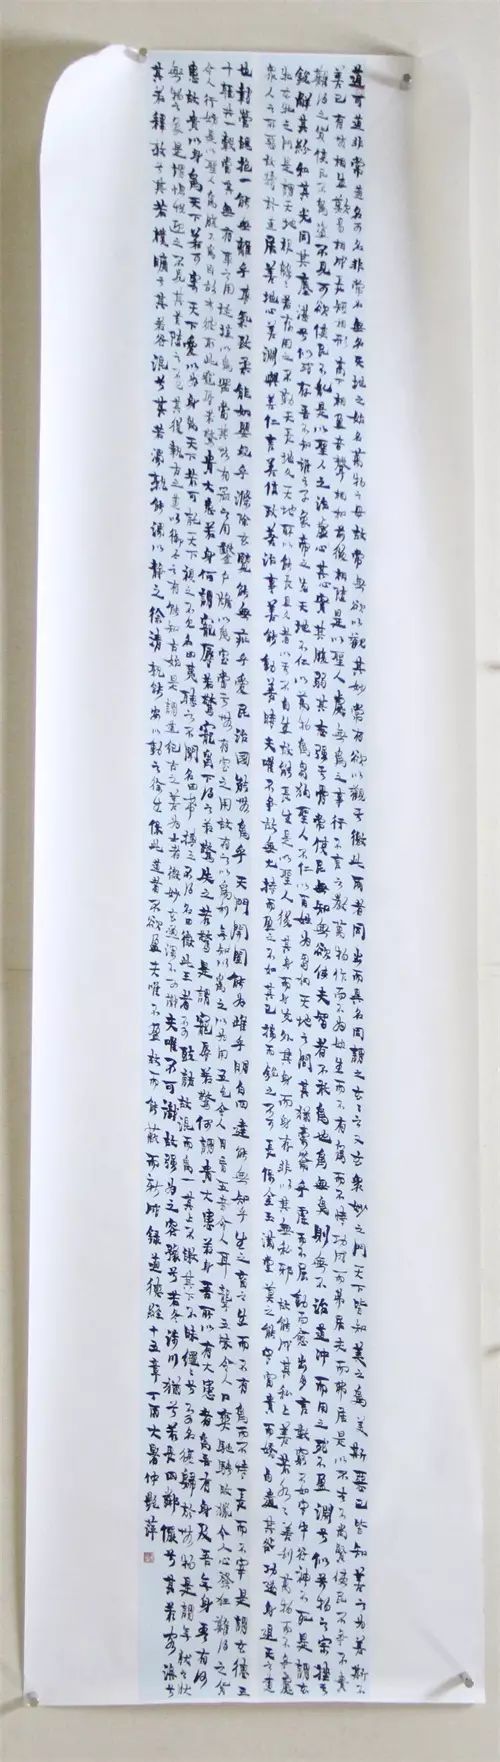 道可道非常道名可名非常名無名天地之始名萬物之母故常無欲以觀其妙常有欲以觀其徼此兩者同出而異名同謂之玄玄之又玄眾妙之門天下皆知美之為美斯惡已皆知善之為善斯不
善已有無相生難易相成長短相形高下相盈音聲相和前後相隨是以聖人處無為之事行不言之教萬物作而不為始生而不有為而不恃功成而弗居夫而弗居是以不去不尚賢使民不爭不貴
難得之貨使民不為盜不見可欲使民不亂是以聖人之治虛其心實其腹弱其志強其骨常使民無知無欲使夫智者不敢為也為無為則無不治道沖而用之或不盈淵兮似萬物之宗挫其
銳解其紛和其光同其塵湛兮似或存吾不知誰之子象帝之先天地不仁以萬物為芻狗聖人不仁以百姓為芻狗天地之間其猶橐籥乎虛而不屈動而愈出多言數窮不如守中谷神不死是謂玄
牝玄牝之門是謂天地根綿綿若存用之不勤天長地久天地所以能長且久者以其不自生故能長生是以聖人後其身而身先外其身而身存非以其無私邪故能成其私上善若水水善利萬物而不爭處
眾人之所惡故幾於道居善地心善淵與善仁言善信政善治事善能動善時夫唯不爭故無尤持而盈之不如其已揣而銳之不可長保金玉滿堂莫之能守富貴而驕自遺其咎功遂身退天之道
也載營魄抱一能無離乎專氣致柔能如嬰兒乎滌除玄覽能無疵乎愛民治國能無為乎天門開闔能為雌乎明白四達能無知乎生之畜之生而不有為而不恃長而不宰是謂玄德三
十輻共一轂當其無有車之用埏埴以為器當其無有器之用鑿戶牖以為室當其無有室之用故有之以為利無之以為用五色令人目盲五音令人耳聾五味令人口爽馳騁畋獵令人心發狂難得之貨
令人行妨是以聖人為腹不為目故去彼取此寵辱若驚貴大患若身何謂寵辱若驚寵為下得之若驚失之若驚是謂寵辱若驚何謂貴大患若身吾所以有大患者為吾有身及吾無身吾有何
患故貴以身為天下若可寄天下愛以身為天下若可託天下視之不見名曰夷聽之不聞名曰希搏之不得名曰微此三者不可致詰故混而為一其上不皦其下不昧繩繩兮不可名復歸於無物是謂無狀之狀
無物之象是謂惚恍迎之不見其首隨之不見其後執古之道以御今之有能知古始是謂道紀古之善為士者微妙玄通深不可識夫唯不可識故強為之容豫兮若冬涉川猶兮若畏四鄰儼兮其若客渙兮
其若釋敦兮其若樸曠兮其若谷混兮其若濁孰能濁以靜之徐清孰能安以動之徐生保此道者不欲盈夫唯不盈故而能蔽而新成錄道德經十五章丁酉大暑仲艷萍